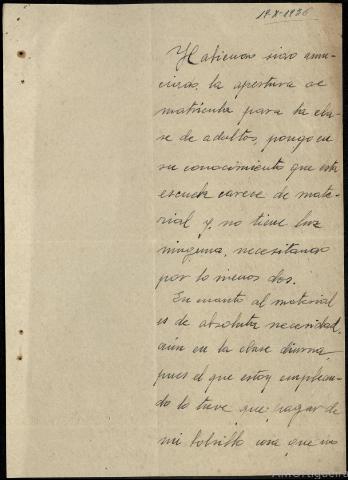 19-X-1926
Habiendo sido anun-
ciada, la apertura de
matricula para la cla-
se de adultos, pongo en
su conocimiento que esta
escuela carece de mate-
rial y no tiene luz
ninguna, necesitando
por lo menos dos.
En cuanto al material
es de absoluta necesidad,
aún en la clase diurna,
pues el que estoy emplean-
do lo tuve que pagar de
mi bolsillo cosa que no